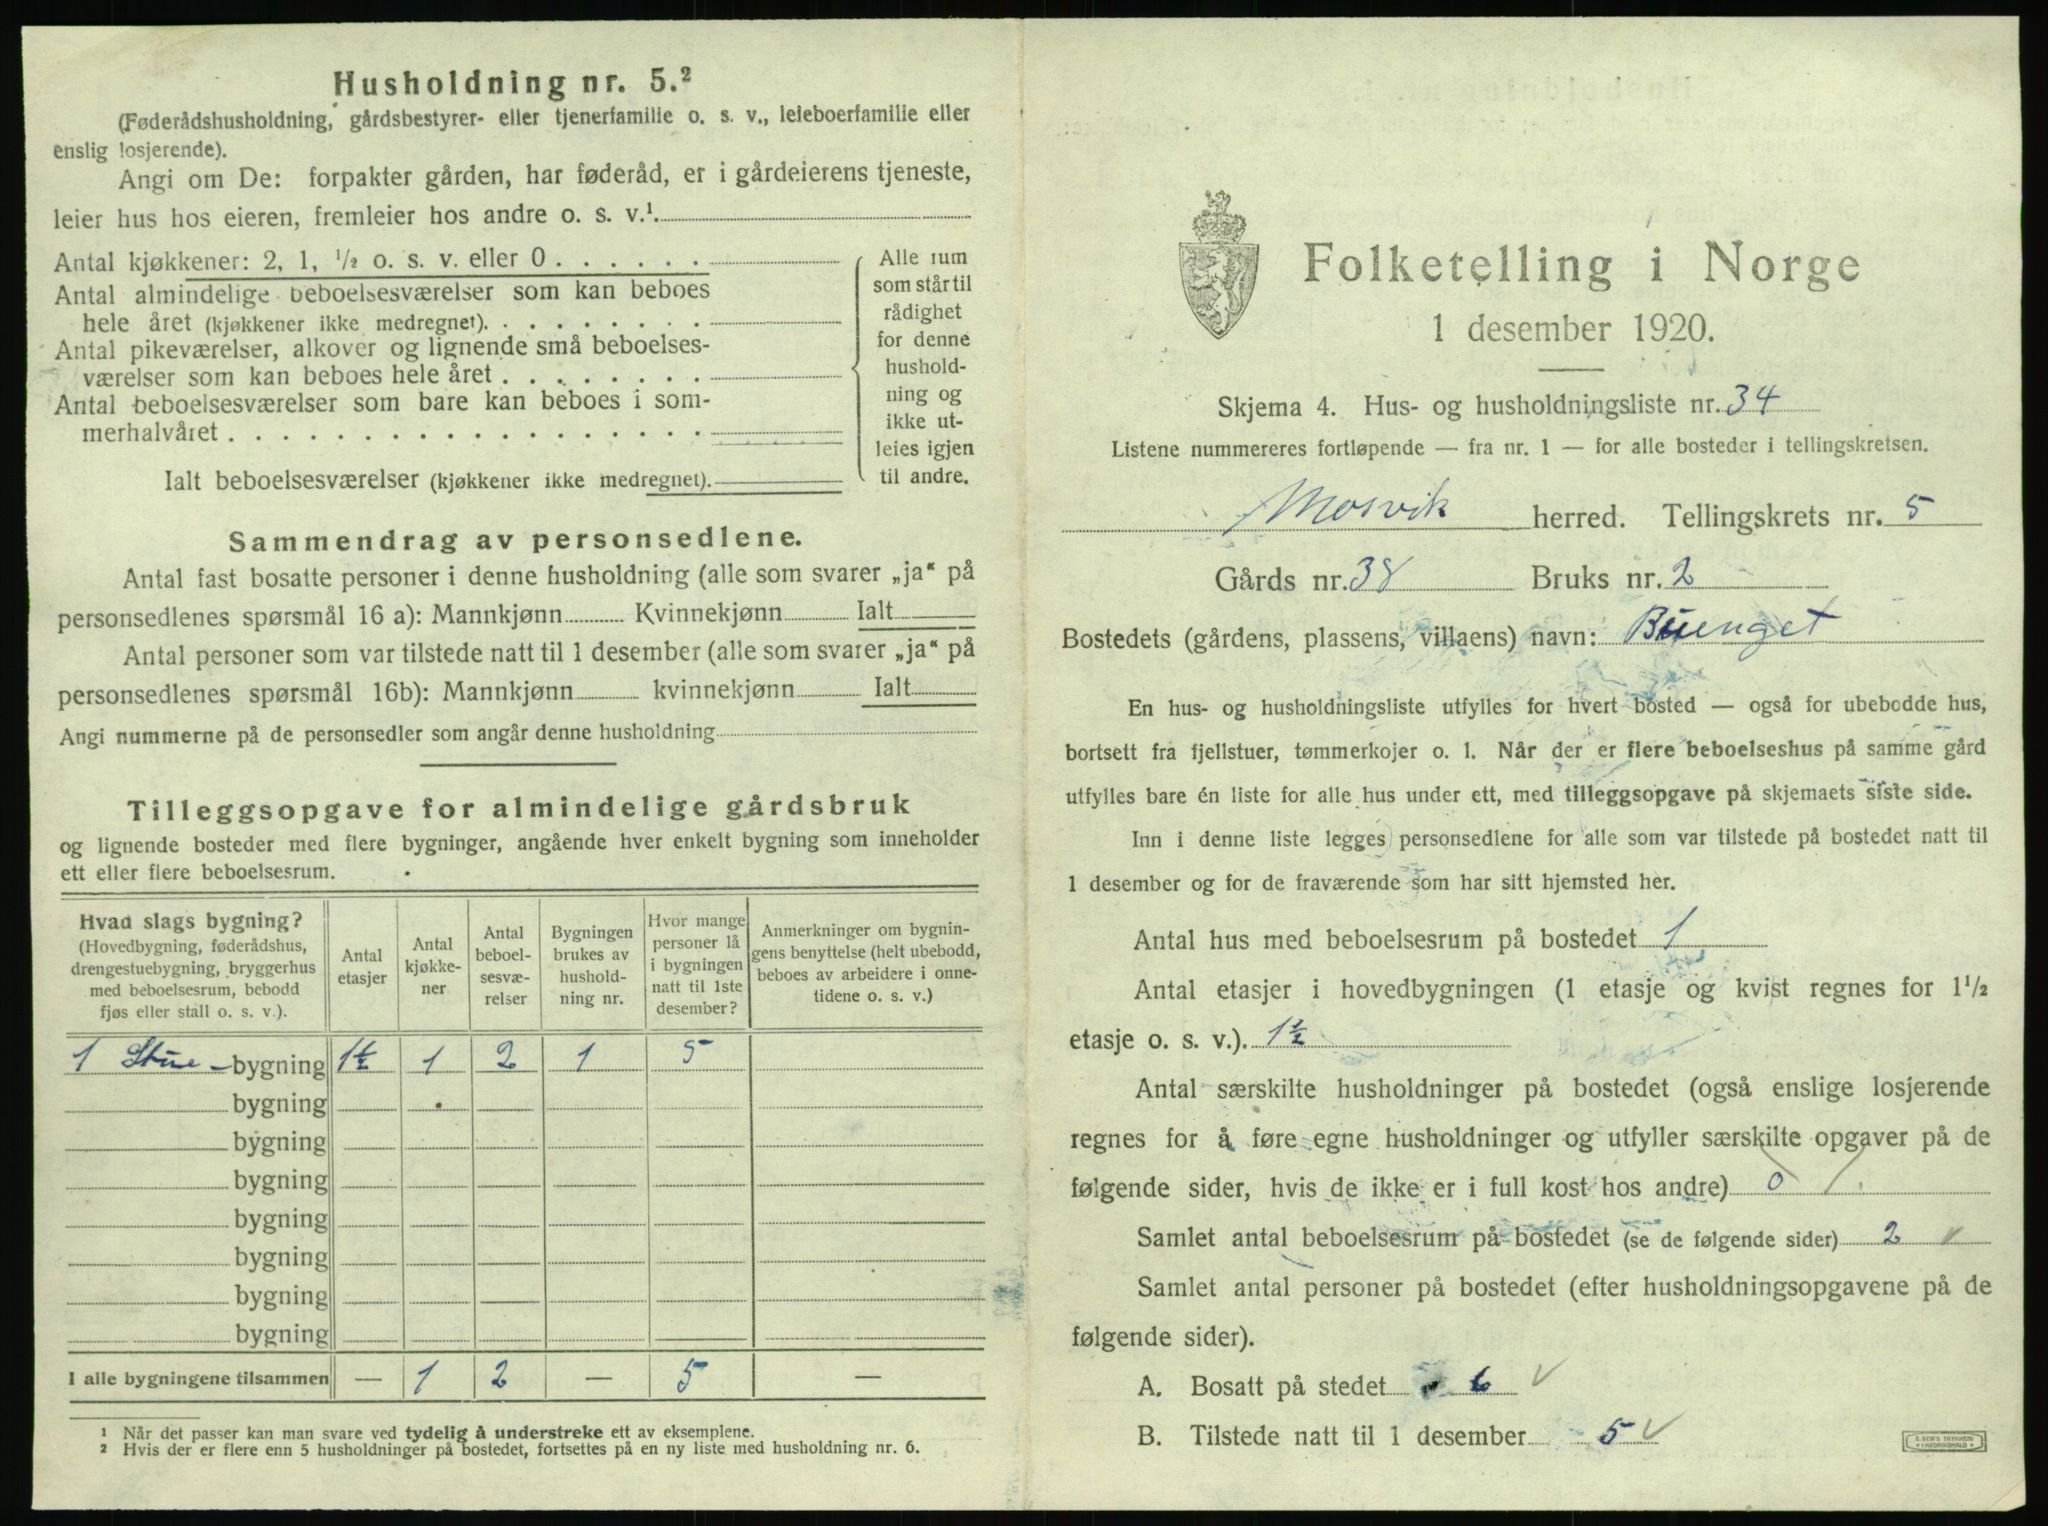 Husholdning nr. 5.²
(Føderådshusholdning, gårdsbestyrer- eller tjenerfamilie o. s. v., leieboerfamilie eller
enslig losjerende).
Angi om De: forpakter gården, har føderåd, er i gårdeierens tjeneste,
leier hus hos eieren, fremleier hos andre o. s. v.¹.
Antal kjøkkener: 2, 1, ½ o. s. v. eller 0 . . . . . .
Antal almindelige beboelsesværelser som kan beboes
hele året (kjøkkener ikke medregnet). . . . . . . . .
Antal pikeværelser, alkover og lignende små beboelses-
værelser som kan beboes hele året . . . . . . . .
Antal beboelsesværelser som bare kan beboes i som-
merhalvåret . . . . . . . . . . . . . . . . . .
Ialt beboelsesværelser (kjøkkener ikke medregnet).
Alle rum
som står til
rådighet
for denne
hushold-
ning og
ikke ut-
leies igjen
til andre.
Sammendrag av personsedlene.
Antal fast bosatte personer i denne husholdning (alle som svarer „ja“ på
personsedlenes spørsmål 16 a): Mannkjønn Kvinnekjønn Ialt
Antal personer som var tilstede natt til 1 desember (alle som svarer „ja“ på
personsedlenes spørsmål 16b): Mannkjønn kvinnekjønn Ialt
Angi nummerne på de personsedler som angår denne husholdning
Tilleggsopgave for almindelige gårdsbruk
og lignende bosteder med flere bygninger, angående hver enkelt bygning som inneholder
ett eller flere beboelsesrum.
Hvad slags bygning?
(Hovedbygning, føderådshus,
drengestuebygning, bryggerhus
med beboelsesrum, bebodd
fjøs eller stall o. s. v.).
Antal
etasjer
Antal
kjøkke-
ner
Antal
beboel-
sesvæ-
relser
Bygningen
brukes av
hushold-
ning nr.
Hvor mange
personer lå
i bygningen
natt til 1ste
desember?
Anmerkninger om bygnin-
gens benyttelse (helt ubebodd,
beboes av arbeidere i onne-
tidene o. s. v.)
1 Stue - bygning 1½ 1 2 1 5
bygning
bygning
bygning
bygning
bygning
bygning
bygning
I alle bygningene tilsammen — 1 2 — 5 —
¹ Når det passer kan man svare ved tydelig å understreke ett av eksemplene.
² Hvis der er flere enn 5 husholdninger på bostedet, fortsettes på en ny liste med husholdning nr. 6.
Folketelling i Norge
1 desember 1920.
Skjema 4. Hus- og husholdningsliste nr. 34
Listene nummereres fortløpende — fra nr. 1 — for alle bosteder i tellingskretsen.
Mosvik herred. Tellingskrets nr. 5
Gårds nr. 38 Bruks nr. 2
Bostedets (gårdens, plassens, villaens) navn: Buenget
En hus- og husholdningsliste utfylles for hvert bosted — også for ubebodde hus,
bortsett fra fjellstuer, tømmerkojer o. l. Når der er flere beboelseshus på samme gård
utfylles bare én liste for alle hus under ett, med tilleggsopgave på skjemaets siste side.
Inn i denne liste legges personsedlene for alle som var tilstede på bostedet natt til
1 desember og for de fraværende som har sitt hjemsted her.
Antal hus med beboelsesrum på bostedet 1
Antal etasjer i hovedbygningen (1 etasje og kvist regnes for 1½
etasje o. s. v.). 1½
Antal særskilte husholdninger på bostedet (også enslige losjerende
regnes for å føre egne husholdninger og utfyller særskilte opgaver på de
følgende sider, hvis de ikke er i full kost hos andre) 0 1.
Samlet antal beboelsesrum på bostedet (se de følgende sider) 2 ✓
Samlet antal personer på bostedet (efter husholdningsopgavene på de
følgende sider).
A. Bosatt på stedet 6 ✓
B. Tilstede natt til 1 desember 5 ✓
E. SEM'S TRYKKERI
FREDRIKSHALD